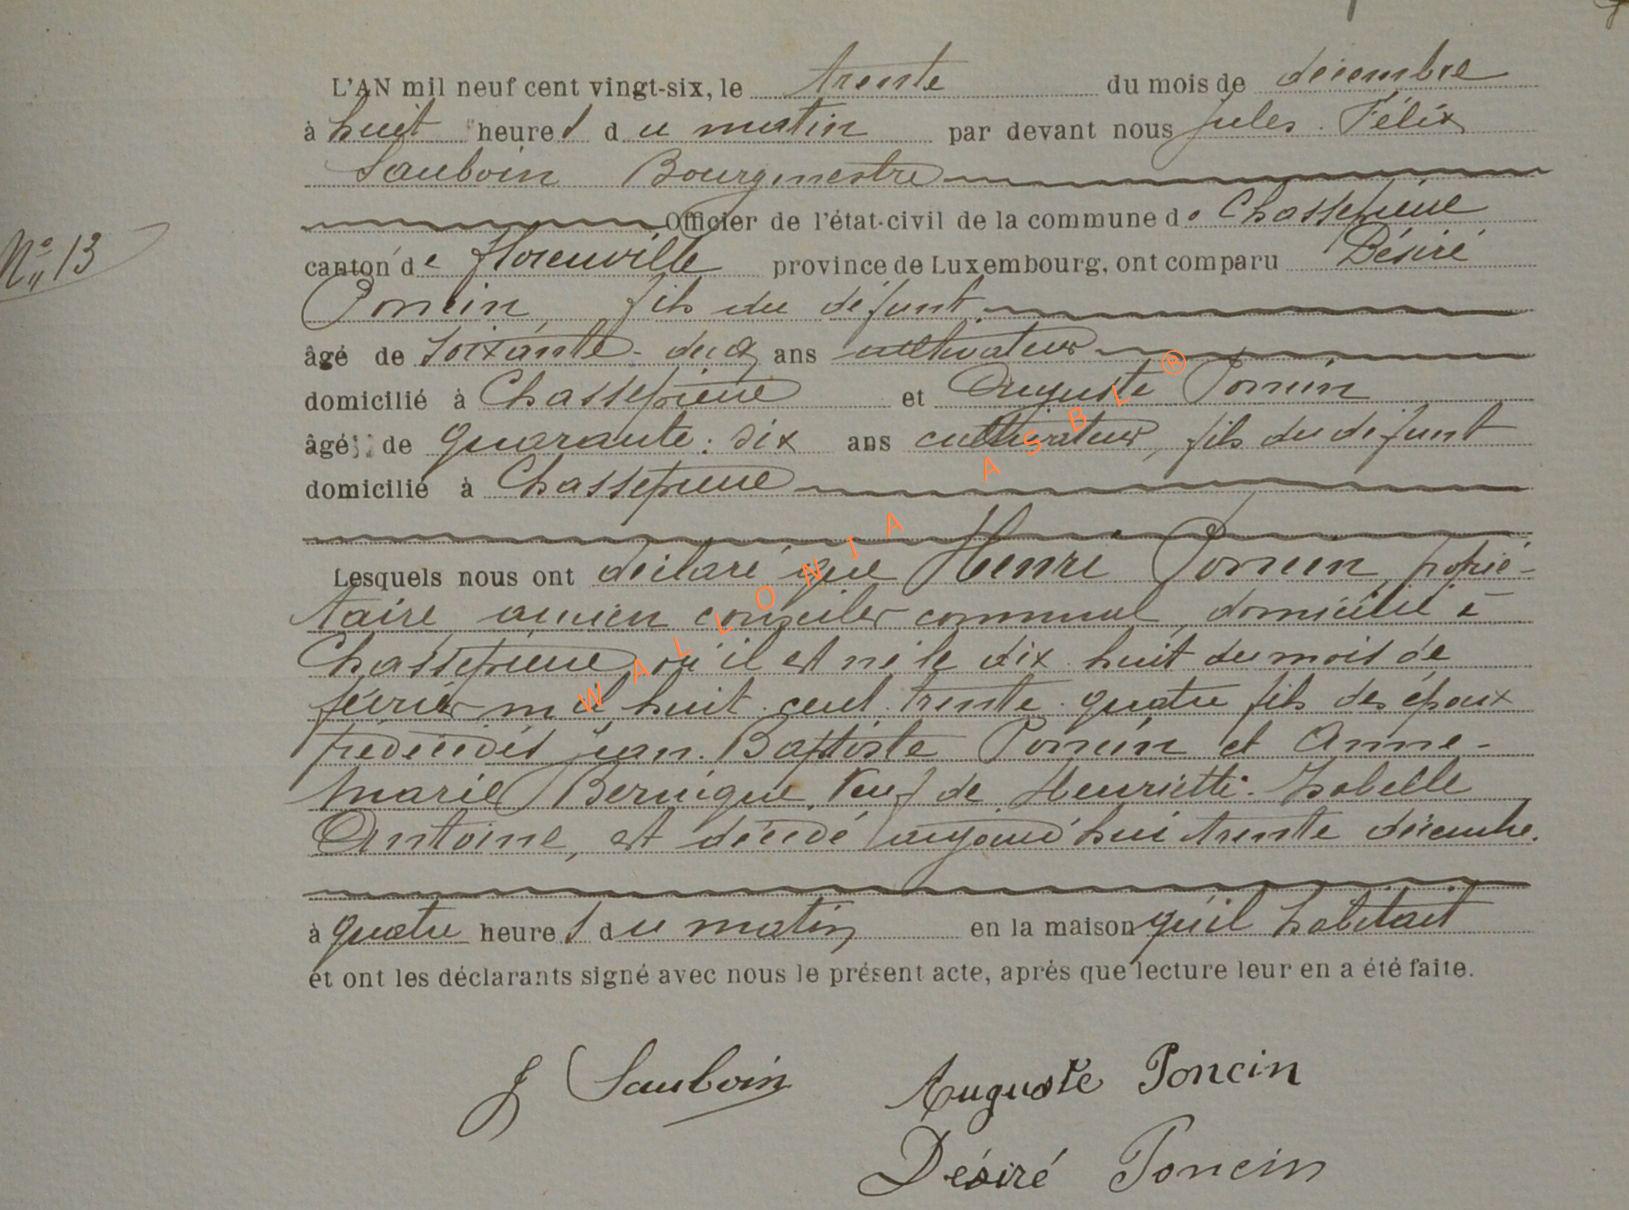 L'AN mil neuf cent vingt-six, le trente du mois de décembre
à huit heures du matin par devant nous Jules Félix
Sauboin Bourgmestre
Officier de l'état-civil de la commune de Chassepierre
N° 13
canton de Florenville province de Luxembourg, ont comparu Désiré
Poncin, fils du défunt
âgé de soixante-deux ans cultivateur
domicilié à Chassepierre et Auguste Poncin
âgé de quarante-six ans cultivateur, fils du défunt
domicilié à Chassepierre
Lesquels nous ont déclaré que Henri Poncin, proprié-
taire ancien conseiller communal, domicilié à
Chassepierre, où il est né le dix huit du mois de
février mil huit cent trente quatre fils des époux
prédécédés Jean-Baptiste Poncin et Anne-
Marie Bernique, veuf de Henriette-Isabelle
Antoine, est décédé aujourd'hui trente décembre.
à quatre heures du matin en la maison qu'il habitait
et ont les déclarants signé avec nous le présent acte, après que lecture leur en a été faite.
J Sauboin Auguste Poncin
Désiré Poncin
WALLONIA ASBL ®